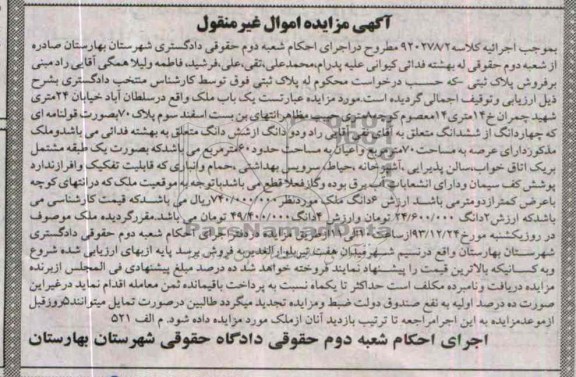 آگهی مزایده اموال غیرمنقول
بموجب اجرائیه کلاسه ۹۲۰۲۷۸/۲ مطروح دراجرای احکام شعبه دوم حقوقی دادگستری شهرستان بهارستان صادره
از شعبه دوم حقوقی له بهشته فدائی کیوانی علیه پدرام،محمدعلی،تقی،علی،فرشید، فاطمه ولیلا همگی آقایی راد مبنی
برفروش پلاک ثبتی -که حسب درخواست محکوم له پلاک ثبتی فوق توسط کارشناس منتخب دادگستری بشرح
ذیل ارزیابی وتوقیف اجمالی گردیده است.مورد مزایده عبارتست یک باب ملک واقع درسلطان آباد خیابان ۲۴متری
شهید چمران خ ۱۴متری ۱۴معصوم کوچه ۸متری مظاهرانتهای بن بست اسفند سوم پلاک ۷۰ بصورت قولنامه ای
که چهاردانگ از ششدانگ متعلق به آقای تقی آقایی راد ودو دانگ ازشش دانگ متعلق به بهشته فدائی می باشدوملک
مذکور دارای عرصه به مساحت ۷۰مترمربع واعیان به مساحت حدود ۶۰مترمربع می باشدکه بصورت یک طبقه مشتمل
بریک اتاق خواب،سالن پذیرایی ،آشپزخانه ،حیاط،سرویس بهداشتی ،حمام وانباری که قابلیت تفکیک وافرازندارد
پوشش کف سیمان ودارای انشعابات آب برق بوده وگازفعلا قطع می باشدباتوجه به موقعیت ملک که درانتهای کوچه
باعرض کمترازدومترمی باشد ارزش ۶دانگ ملک موردنظر ۷۴۰/۰۰۰/۰۰۰ریال می باشدکه قیمت کارشناسی می
باشدکه ارزش ۲دانگ ۲۴/۶۰۰/۰۰۰ تومان وارزش ۴دانگ ۴۹/۴۰۰/۰۰۰ تومان می باشد.مقررگردیده ملک موصوف
در روزیکشنبه مورخ ۹۳/۱۲/۲۴ازساعت دفتر اجرای احکام شعبه دوم حقوقی دادگستری
شهرستان بهارستان واقع درنسیم شهرمیدان هفت تیربلوارالغدیربه فروش برسد پایه ازبهای ارزیابی شده شروع
وبه کسانیکه بالاترین قیمت را پیشنهاد نمایند فروخته خواهد شد ده درصد مبلغ پیشنهادی فی المجلس ازبرنده
مزایده دریافت ونامبرده مکلف است حداکثر تا یکماه نسبت به پرداخت باقیمانده ثمن معامله اقدام نماید درغیراین
صورت ده درصد اولیه به نفع صندوق دولت ضبط ومزایده تجدید میگردد طالبین درصورت تمایل میتوانند۵روزقبل
ازموعدمزایده به این اجرامراجعه تا ترتیب بازدید آنان ازملک مورد مزایده داده شود. م الف ۵۲۱
اجرای احکام شعبه دوم حقوقی دادگاه حقوقی شهرستان بهارستان